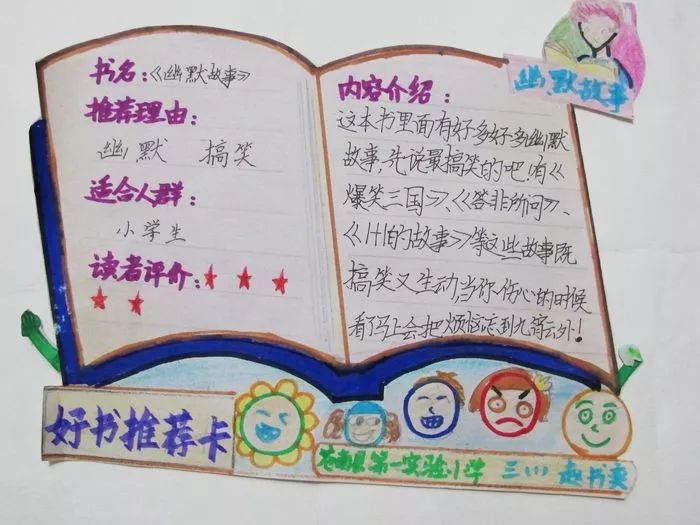 书名：《幽默故事》
推荐理由：
幽默 搞笑
适合人群：
小学生
读者评价：★ ★ ★
★ ★
幽默故事
内容介绍：
这本书里面有好多好多幽默
故事，先说最搞笑的吧！有《
爆笑三国》、《答非所问》、
《1+1的故事》等这些故事既
搞笑又生动，当你伤心的时候
看了马上会把烦恼忘到九霄云外！
好书推荐卡
苍南县第一实验小学 三（1） 赵书奕